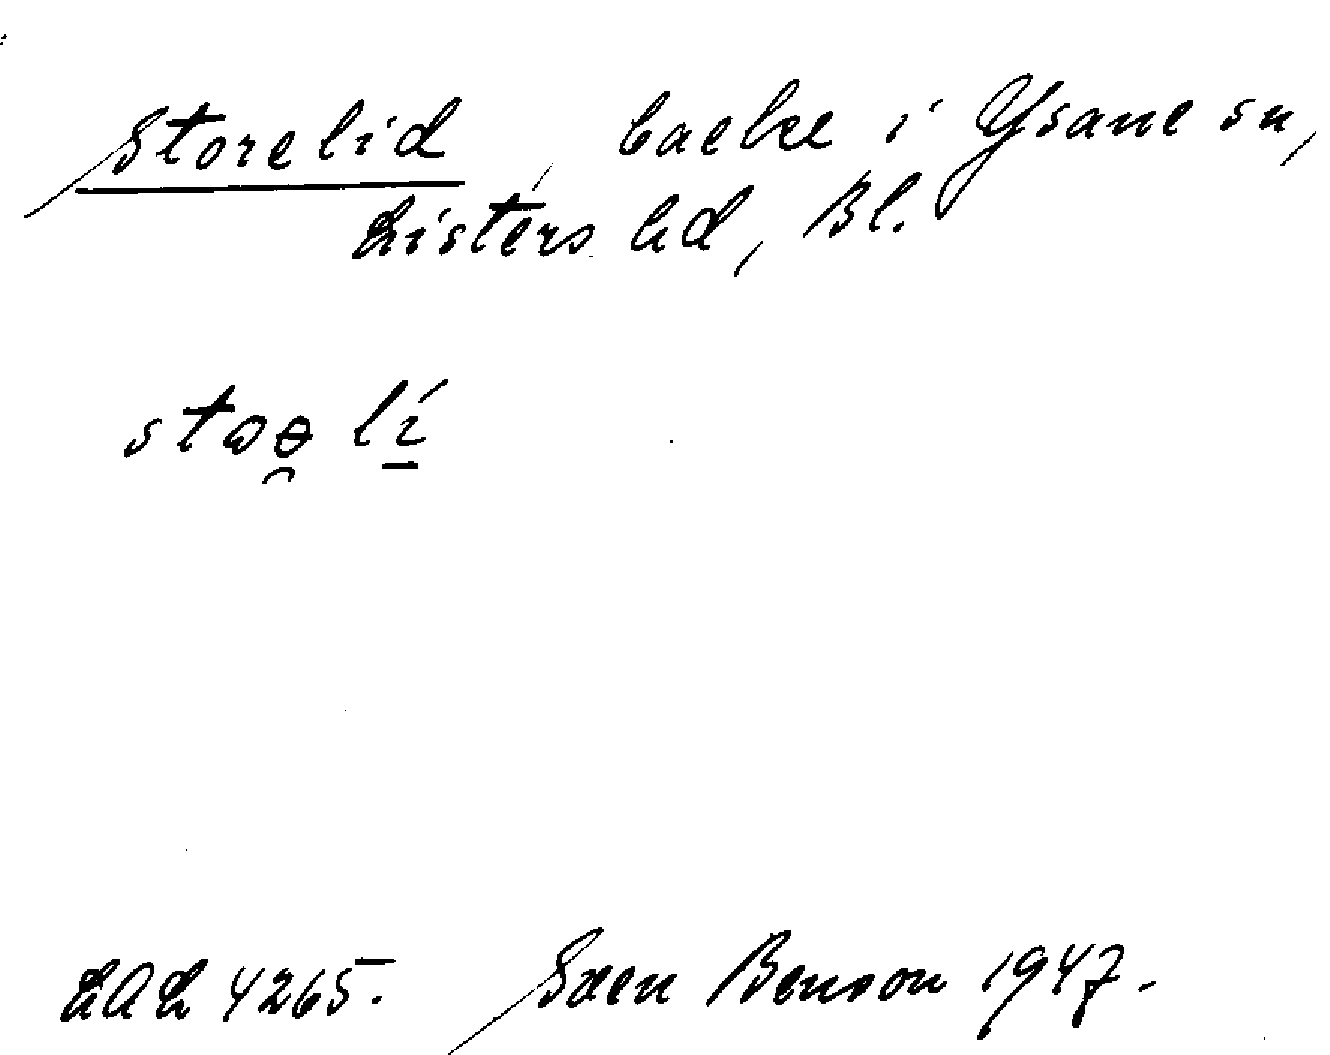 Storelid, backe i Ysane sn,
Listers hd, Bl.
stoə̯ lí̱
LAL 4265. Sven Benson 1947.